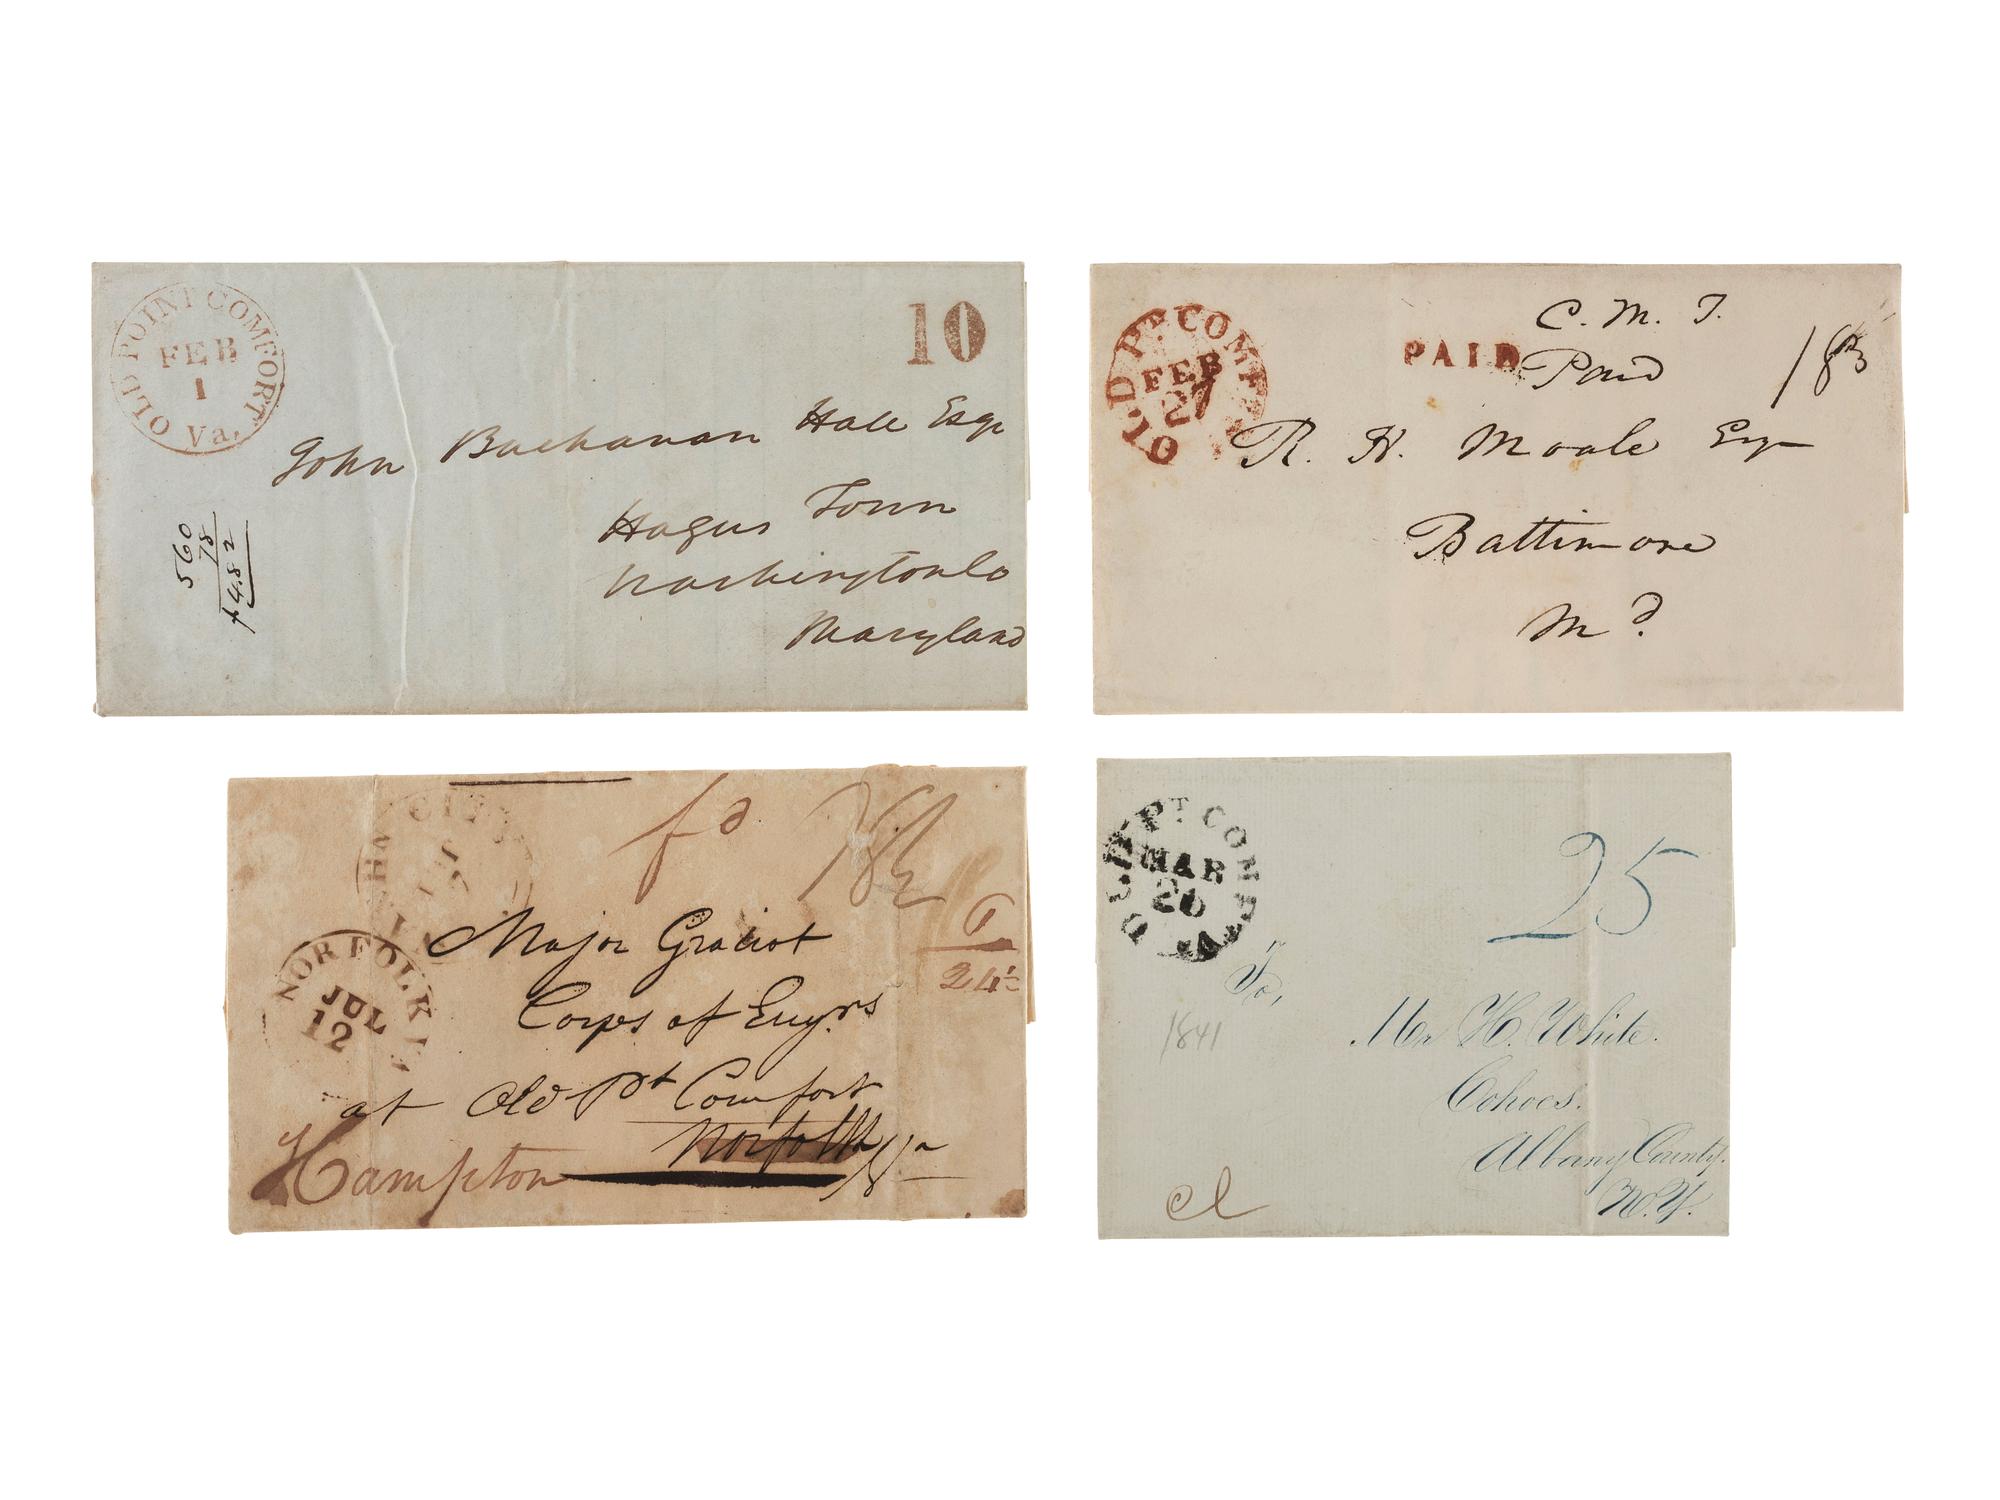 OLD POINT COMFORT Va.
FEB
1
10
John Buchanan Hall Esqr
Hagus Town
Washington Co
Maryland
560
78
$4.82
OLD Pt. COMFT
FEB
27
PAID
C. M. T.
Paid
18¾
R. H. Moale Esqr
Baltimore
Md.
CITY
NORFOLK
JUL
12
fd
18½
6
24½
Major Gratiot
Corps of Engrs
at Old Pt Comfort
Norfolk Va
Hampton
OLD PT COMFT VA.
MAR
20
25
To,
Mr H. White.
Cohoes.
Albany County.
N.Y.
1841
cl